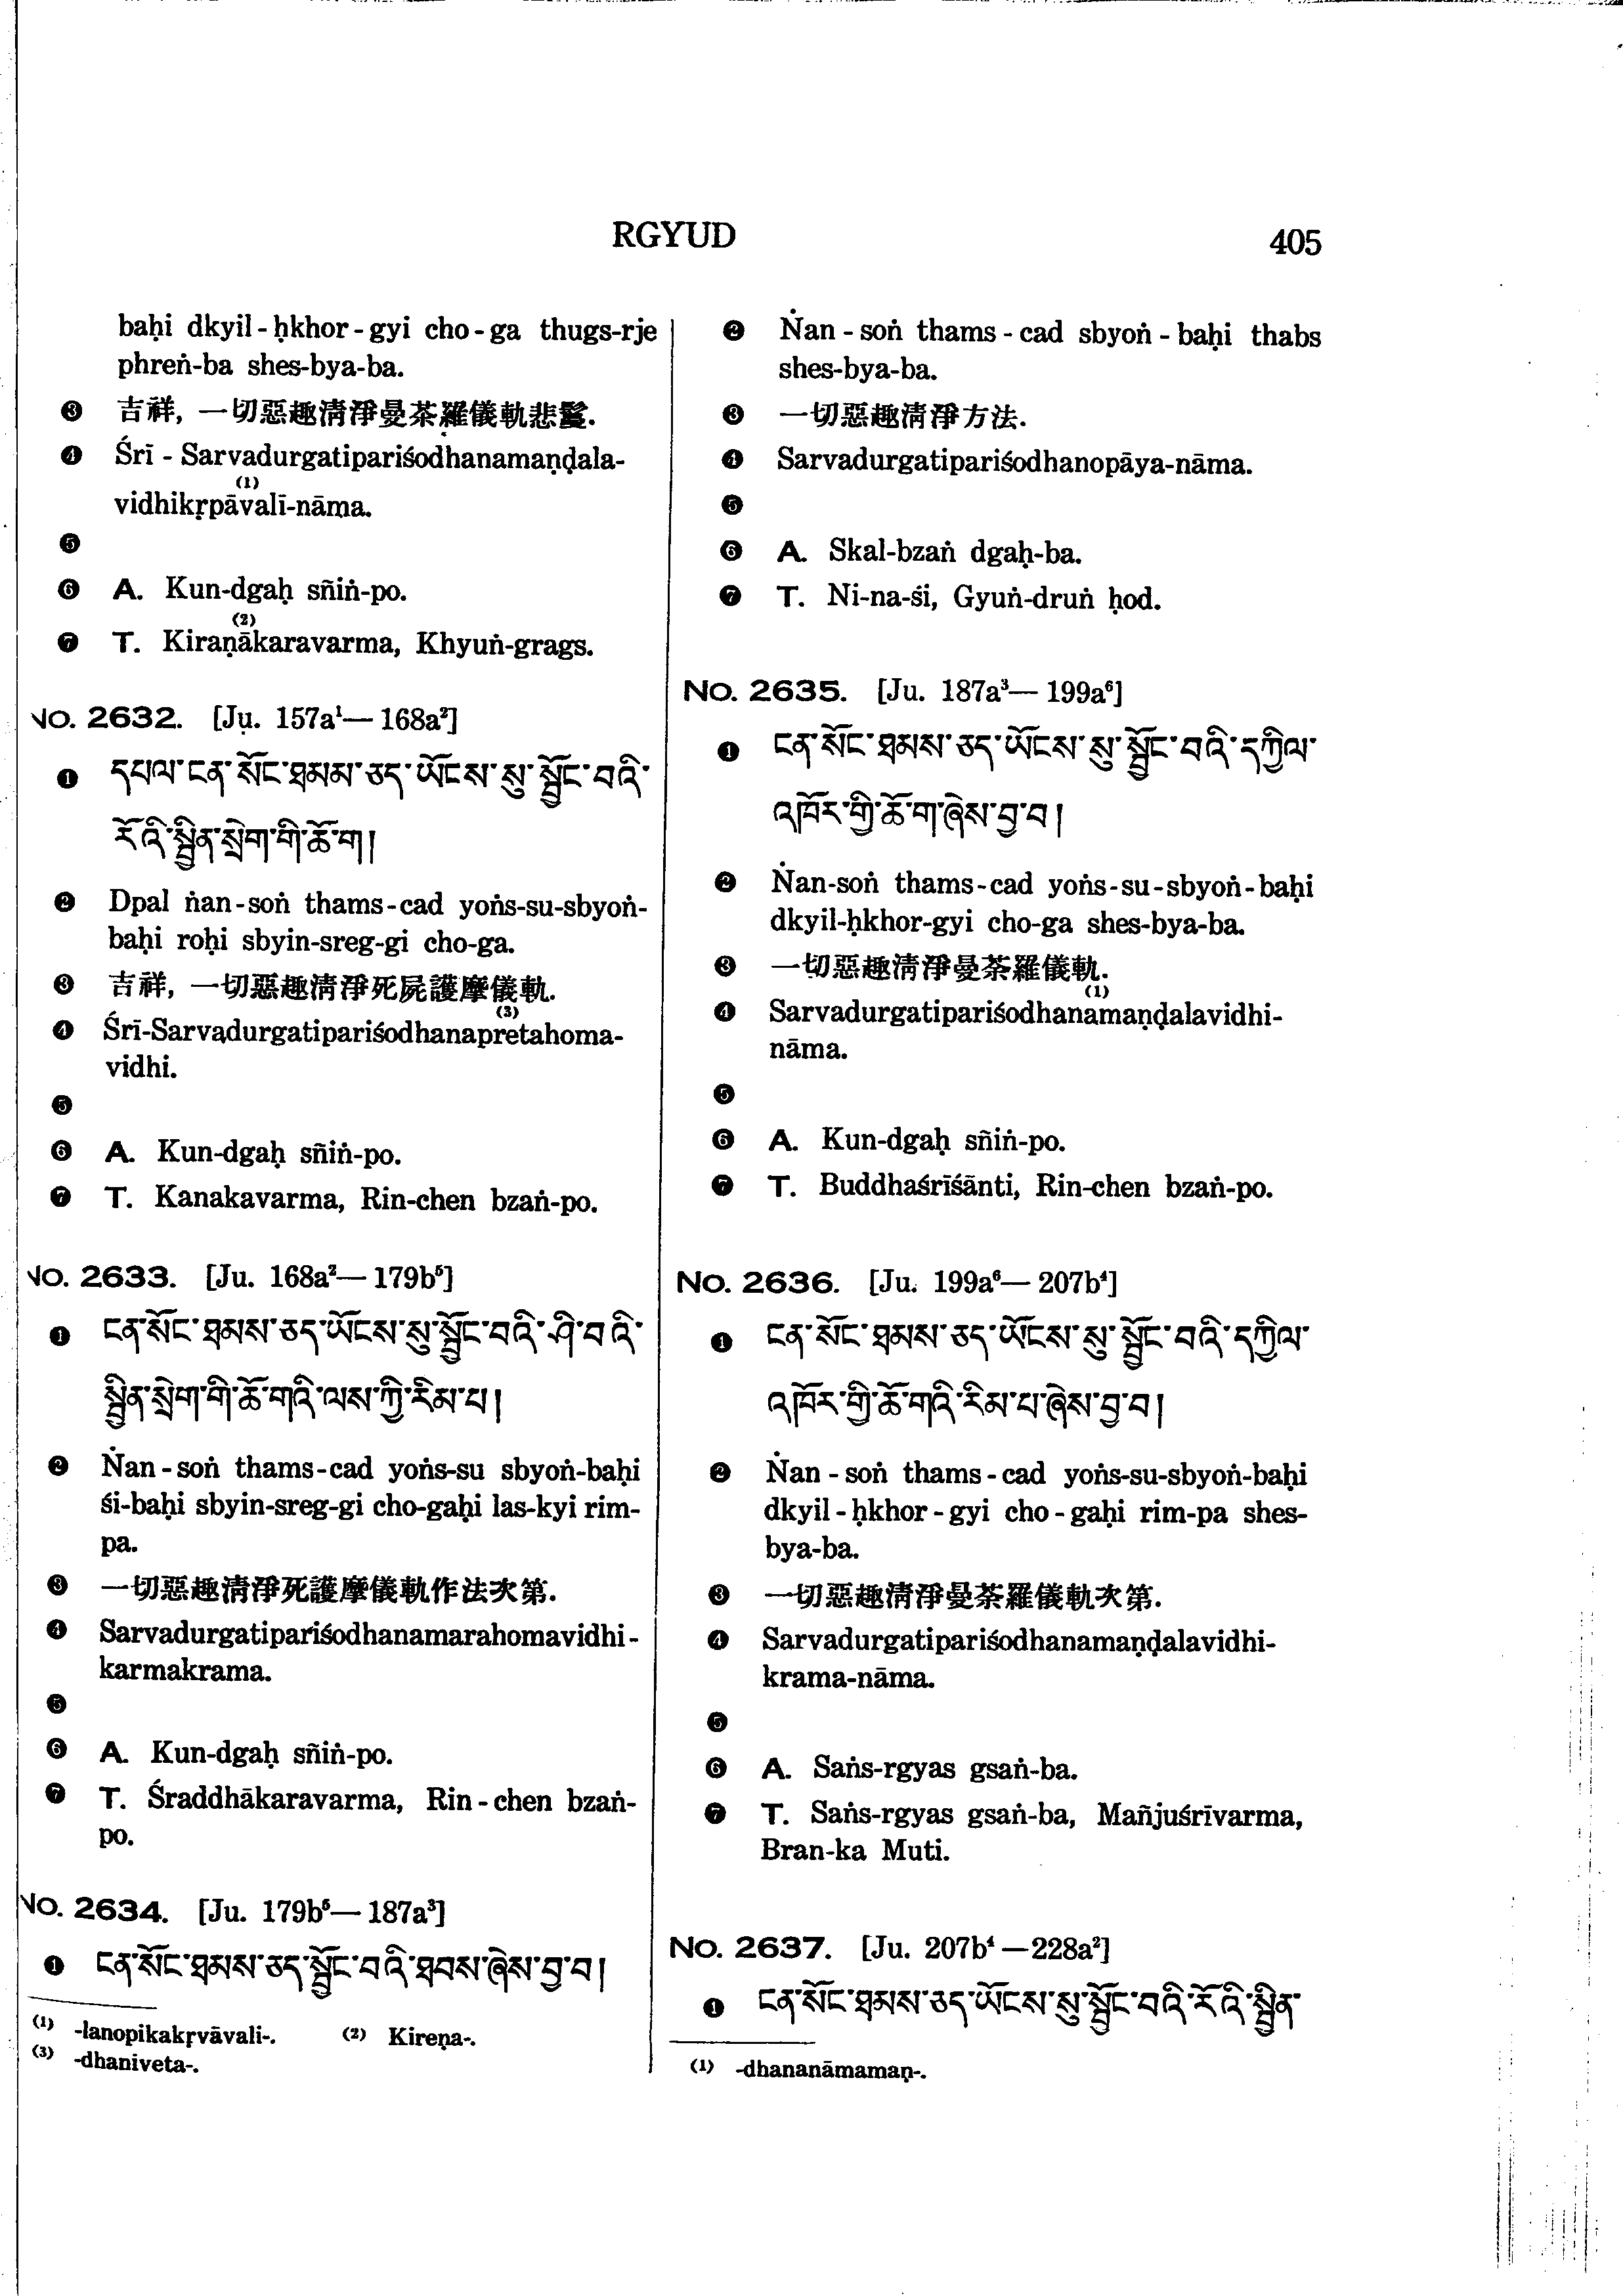 RGYUD
405
baḥi dkyil-ḥkhor-gyi cho-ga thugs-rje
phreṅ-ba shes-bya-ba.
❸ 吉祥, 一切惡趣清淨曼茶羅儀軌悲鬘.
❹ Śrī-Sarvadurgatipariśodhanamaṇḍala-
(1)
vidhikṛpāvalī-nāma.
❺
❻ A. Kun-dgaḥ sñiṅ-po.
(2)
❼ T. Kiraṇākaravarma, Khyuṅ-grags.
No. 2632. [Ju. 157a¹—168a²]
❶ དཔལ་ངན་སོང་ཐམམ་ཅད་ཡོངས་སུ་སྦྱོང་བའི་
རོའི་སྦྱིན་སྲེག་གི་ཆོ་ག།
❷ Dpal ṅan-soṅ thams-cad yoṅs-su-sbyoṅ-
baḥi roḥi sbyin-sreg-gi cho-ga.
❸ 吉祥, 一切惡趣清淨死屍護摩儀軌.
(3)
❹ Śrī-Sarvadurgatipariśodhanapretahoma-
vidhi.
❺
❻ A. Kun-dgaḥ sñiṅ-po.
❼ T. Kanakavarma, Rin-chen bzaṅ-po.
No. 2633. [Ju. 168a²—179b⁵]
❶ ངན་སོང་ཐམས་ཅད་ཡོངས་སུ་སྦྱོང་བའི་ཤི་བའི་
སྦྱིན་སྲེག་གི་ཆོ་གའི་ལས་ཀྱི་རིམ་པ།
❷ Ṅan-soṅ thams-cad yoṅs-su sbyoṅ-baḥi
śi-baḥi sbyin-sreg-gi cho-gaḥi las-kyi rim-
pa.
❸ 一切惡趣清淨死護摩儀軌作法次第.
❹ Sarvadurgatipariśodhanamarahomavidhi-
karmakrama.
❺
❻ A. Kun-dgaḥ sñiṅ-po.
❼ T. Śraddhākaravarma, Rin-chen bzaṅ-
po.
No. 2634. [Ju. 179b⁵—187a³]
❶ ངན་སོང་ཐམས་ཅད་སྦྱོང་བའི་ཐབས་ཞེས་བྱ་བ།
(1) -lanopikakṛvāvali-. (2) Kireṇa-.
(3) -dhaniveta-.
❷ Ṅan-soṅ thams-cad sbyoṅ-baḥi thabs
shes-bya-ba.
❸ 一切惡趣清淨方法.
❹ Sarvadurgatipariśodhanopāya-nāma.
❺
❻ A. Skal-bzaṅ dgaḥ-ba.
❼ T. Ni-na-śi, Gyuṅ-druṅ ḥod.
No. 2635. [Ju. 187a³—199a⁶]
❶ ངན་སོང་ཐམས་ཅད་ཡོངས་སུ་སྦྱོང་བའི་དཀྱིལ་
འཁོར་གྱི་ཆོ་ག་ཞེས་བྱ་བ།
❷ Ṅan-soṅ thams-cad yoṅs-su-sbyoṅ-baḥi
dkyil-ḥkhor-gyi cho-ga shes-bya-ba.
❸ 一切惡趣清淨曼茶羅儀軌.
(1)
❹ Sarvadurgatipariśodhanamaṇḍalavidhi-
nāma.
❺
❻ A. Kun-dgaḥ sñiṅ-po.
❼ T. Buddhaśrīśānti, Rin-chen bzaṅ-po.
No. 2636. [Ju. 199a⁶—207b⁴]
❶ ངན་སོང་ཐམས་ཅད་ཡོངས་སུ་སྦྱོང་བའི་དཀྱིལ་
འཁོར་གྱི་ཆོ་གའི་རིམ་པ་ཞེས་བྱ་བ།
❷ Ṅan-soṅ thams-cad yoṅs-su-sbyoṅ-baḥi
dkyil-ḥkhor-gyi cho-gaḥi rim-pa shes-
bya-ba.
❸ 一切惡趣清淨曼茶羅儀軌次第.
❹ Sarvadurgatipariśodhanamaṇḍalavidhi-
krama-nāma.
❺
❻ A. Saṅs-rgyas gsaṅ-ba.
❼ T. Saṅs-rgyas gsaṅ-ba, Mañjuśrīvarma,
Bran-ka Muti.
No. 2637. [Ju. 207b⁴—228a²]
❶ ངན་སོང་ཐམས་ཅད་ཡོངས་སུ་སྦྱོང་བའི་རོའི་སྦྱིན་
(1) -dhananāmamaṇ-.